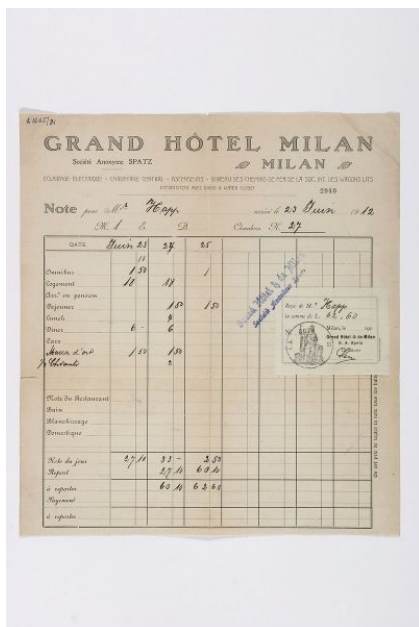 GRAND HÔTEL MILAN
Société Anonyme SPATZ
MILAN
ÉCLAIRAGE ÉLECTRIQUE - CHAUFFAGE CENTRAL - ASCENSEURS - BUREAU DES CHEMINS DE FER DE LA SOC. INT. DES WAGONS LITS
2940
Note pour Mr Happ arrivé le 23 Juin 1912
M. 1 E. D. Chambre N. 27
DATE Juin 23 24 25
Omnibus 1 50 1
Logement 18 18
Arr.t en pension
Déjeuner 1 50 1 50
Lunch
Diner 6 - 6
Cave
1 50 1 50
Note du Restaurant
Bain
Blanchissage
Domestique
Note du jour 27 10 33 - 2 50
Report 27 10 60 10
à reporter 60 10 62 60
Payement
à reporter
Grand Hôtel & de Milan
Société Anonyme Spatz
Reçu de Mr. Happ
la somme de L. 62.60
Milan, le 191
Grand Hôtel & de Milan